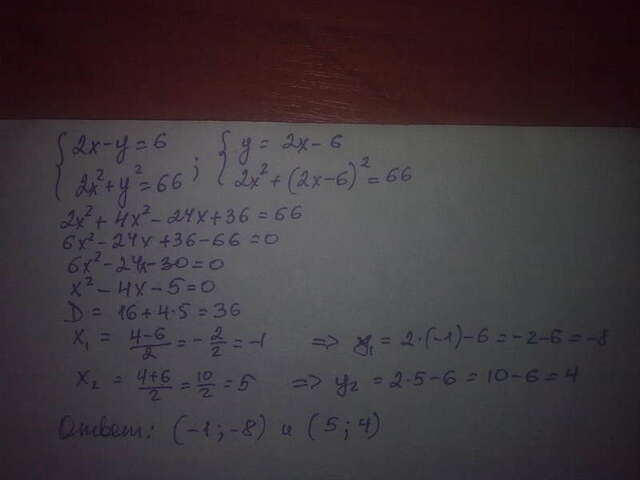 {2x-y=6 ; {y = 2x-6
{2x²+y²=66 {2x²+(2x-6)²=66
2x²+4x²-24x+36=66
6x²-24x+36-66=0
6x²-24x-30=0
x²-4x-5=0
D = 16+4·5=36
x₁ = (4-6)/2 = -2/2 = -1 => y₁ = 2·(-1)-6=-2-6=-8
x₂ = (4+6)/2 = 10/2 = 5 => y₂ = 2·5-6=10-6=4
Ответ: (-1;-8) и (5;4)